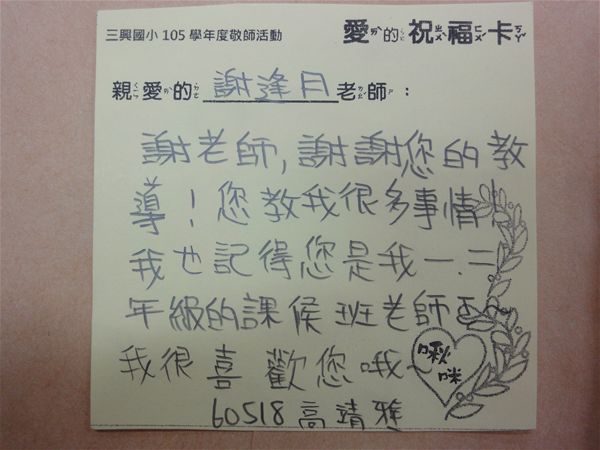 三興國小 105 學年度敬師活動
愛的祝福卡
親愛的 謝逢月 老師：
謝老師,謝謝您的教
導！您教我很多事情，
我也記得您是我一.二
年級的課候班老師
我很喜歡您哦~
啾咪
60518 高靖雅